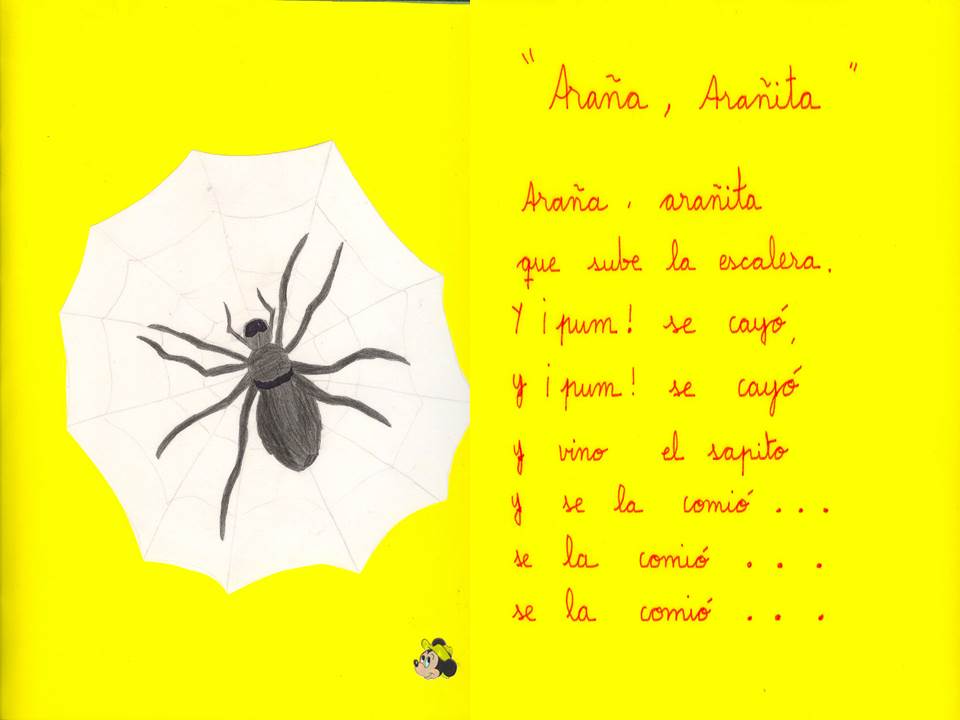 " Araña, Arañita "
Araña, arañita
que sube la escalera.
Y ¡pum! se cayó,
y ¡pum! se cayó
y vino el sapito
y se la comió...
se la comió...
se la comió...